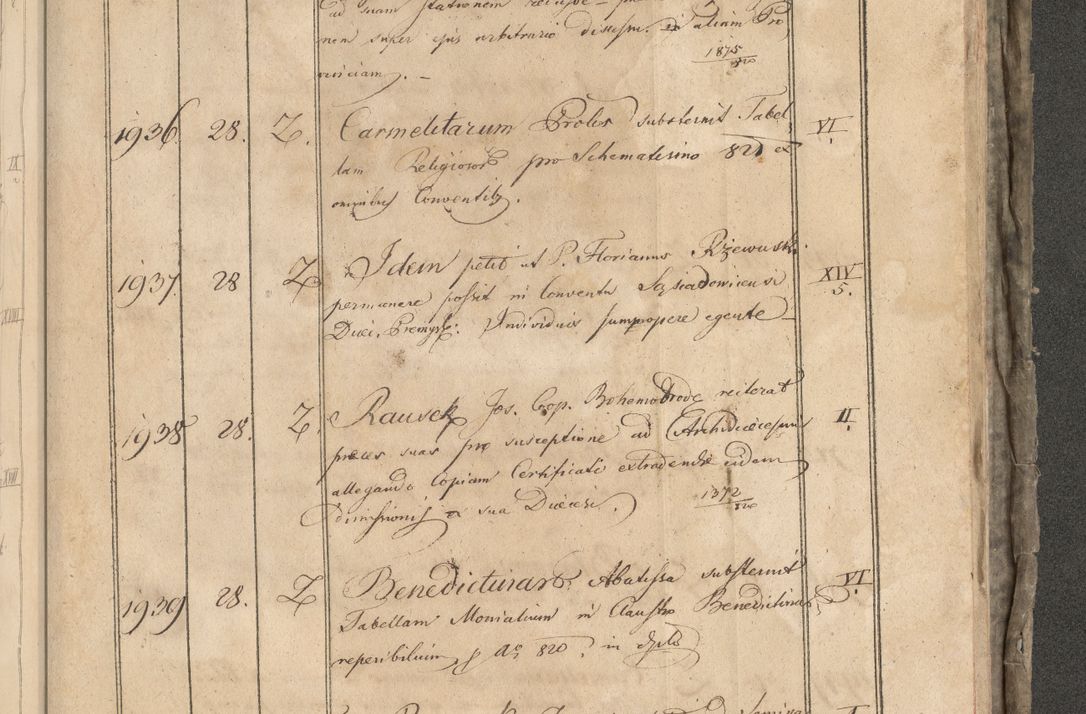 ad suam stationem
nem super ejus arbitrario discessu ex aliam Pro
vinciam. –
1875
820
1936. 28. Z. Carmelitarum Proles substernit Tabel
lam Religiosor pro Schematismo 821 ex
omnibus Conventib.
VI.
1937. 28 Z Idem petit ut P. Florianus Rzewuski
permanere possit in Conventu Sąsiadovicensi
Diœc. Premysl: Individuis summopere egente –
XIV
5.
1938 28. Z. Rausek Jos. Coop. Bohemobrodæ reiterat
preces suas pro susceptione ad Archidiœcesim
allegando Copiam Certificati extradendæ eidem
dimissionis ex sua Diœcesi.
1372
820
II.
1939 28. Z Benedictinar. Abatissa substernit
Tabellam Monialium in Claustro Benedictinar
reperibilium p Ao 820. in dplo
VI.